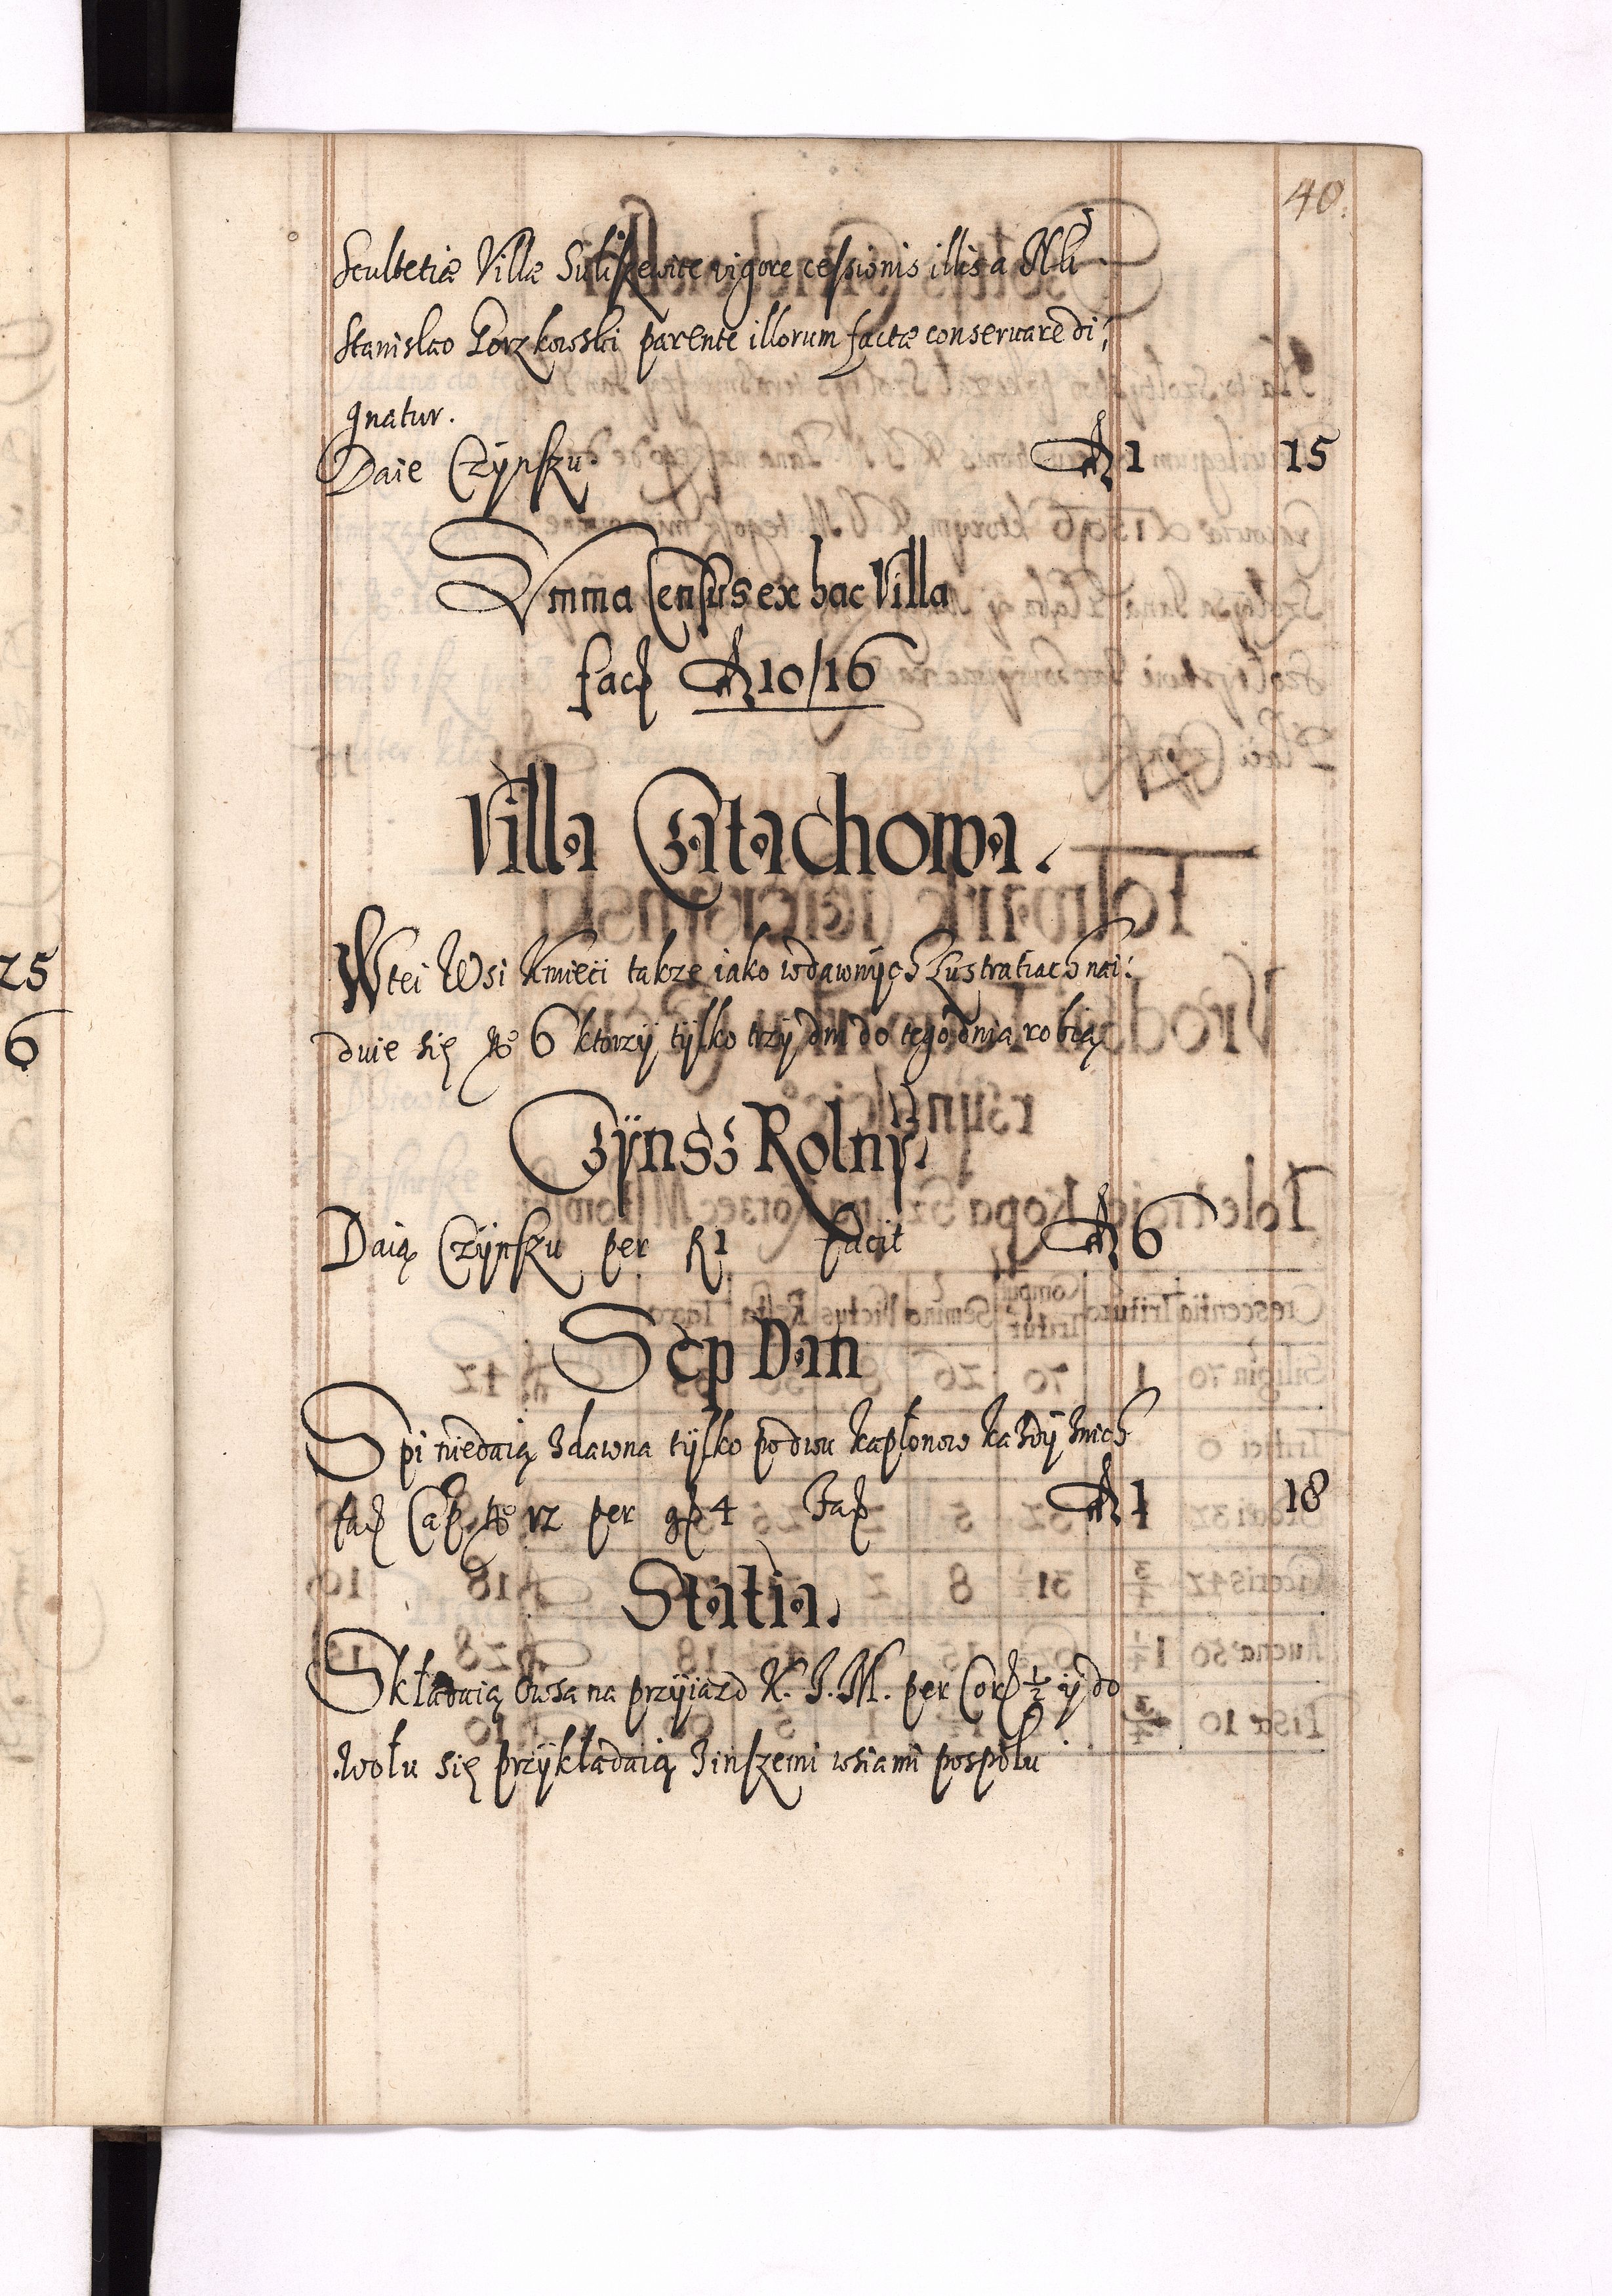 40.
Scultetiæ Villæ Suliszewice vigore cessionis illis a Nbli
Stanislao Gorzkowski parente illorum factæ conservare di:
gnatur.
Daie Czÿnszu fl 1 15
Summa Census ex hac Villa
facit fl 10/16
Villa Czatachowa.
W tei Wsi Kmieci takze iako wdawnÿch Lustratiach nai:
duie się No 6 ktorzÿ tÿlko trzÿ dni do tegodnia robią
Czÿnsz Rolnÿ.
Daią Czÿnszu per fl 1 facit fl 6
Sep Dan
Spi niedaią zdawna tÿlko po dwu kapłonow każdÿ znich
fac Cap No 12 per gr 4 Fac fl 1 18
Statia.
Składaią Owsa na przÿiazd K. J. M. per Cor ½ ÿ do
wołu się przÿkładaią zinszemi wsiami pospołu
25
6